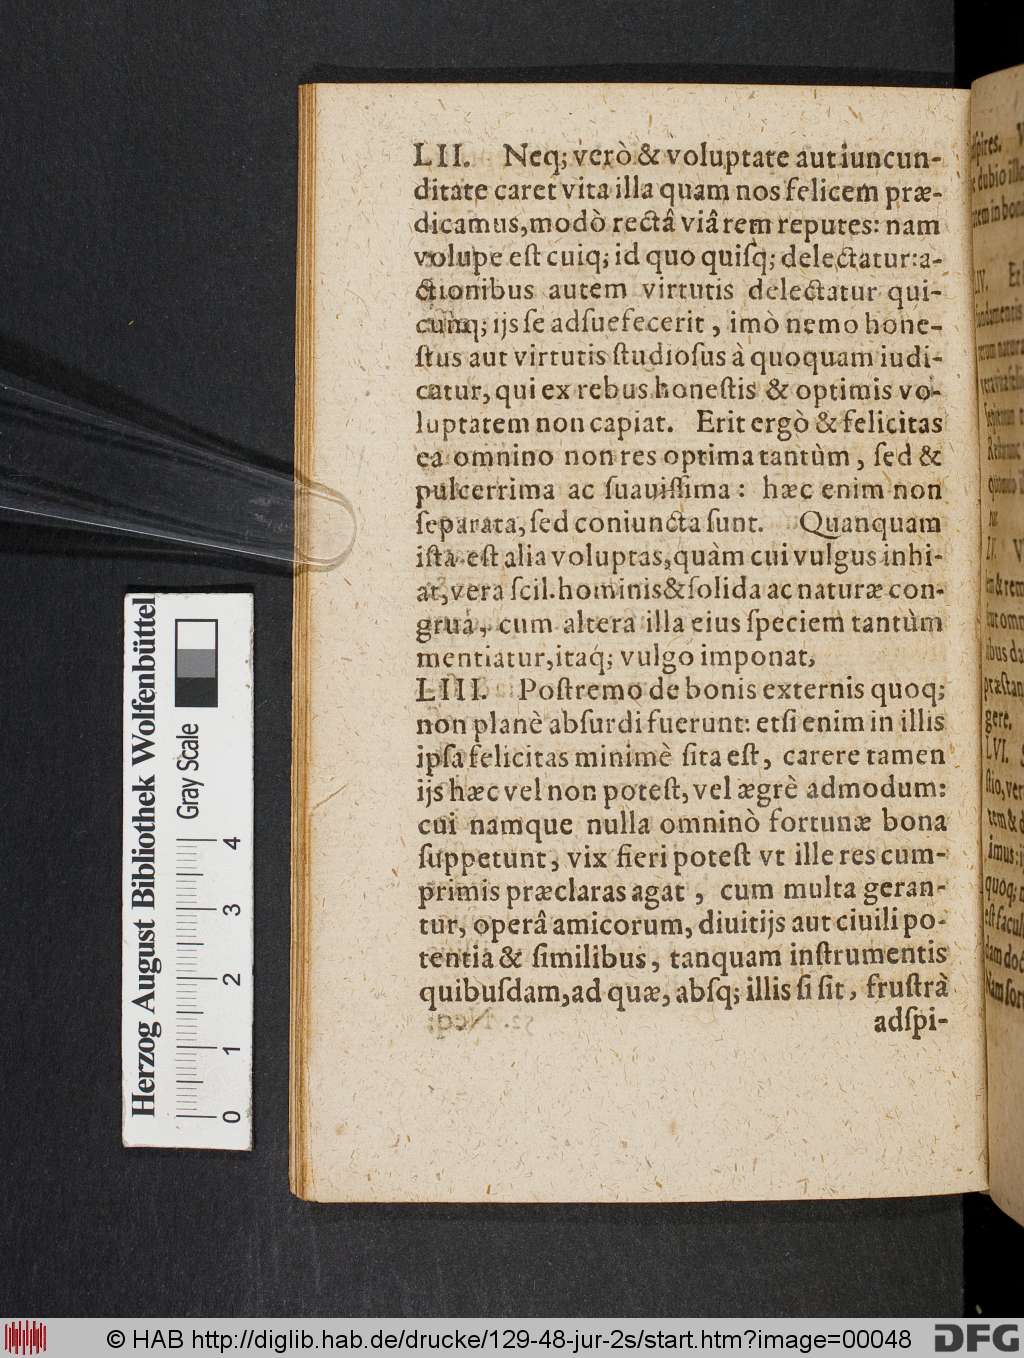 LII. Neq; verò & voluptate aut iuncun-
ditate caret vita illa quam nos felicem præ-
dicamus, modò rectâ viâ rem reputes: nam
volupe eſt cuiq; id quo quiſq; delectatur: a-
ctionibus autem virtutis delectatur qui-
cunq; ijs ſe adſuefecerit, imò nemo hone-
ſtus aut virtutis ſtudioſus à quoquam iudi-
catur, qui ex rebus honeſtis & optimis vo-
luptatem non capiat. Erit ergò & felicitas
ea omnino non res optima tantùm, ſed &
pulcerrima ac ſuauiſſima: hæc enim non
ſeparata, ſed coniuncta ſunt. Quanquam
iſta eſt alia voluptas, quàm cui vulgus inhi-
at, vera ſcil. hominis & ſolida ac naturæ con-
grua, cum altera illa eius ſpeciem tantùm
mentiatur, itaq́; vulgo imponat,
LIII. Poſtremo de bonis externis quoq;
non planè abſurdi fuerunt: etſi enim in illis
ipſa felicitas minimè ſita eſt, carere tamen
ijs hæc vel non poteſt, vel ægrè admodum:
cui namque nulla omninò fortunæ bona
ſuppetunt, vix fieri poteſt vt ille res cum-
primis præclaras agat, cum multa geran-
tur, operâ amicorum, diuitijs aut ciuili po-
tentia & ſimilibus, tanquam inſtrumentis
quibuſdam, ad quæ, abſq; illis ſi ſit, fruſtrà
adſpi-
Herzog August Bibliothek Wolfenbüttel
Gray Scale
0 1 2 3 4
© HAB http://diglib.hab.de/drucke/129-48-jur-2s/start.htm?image=00048
DFG